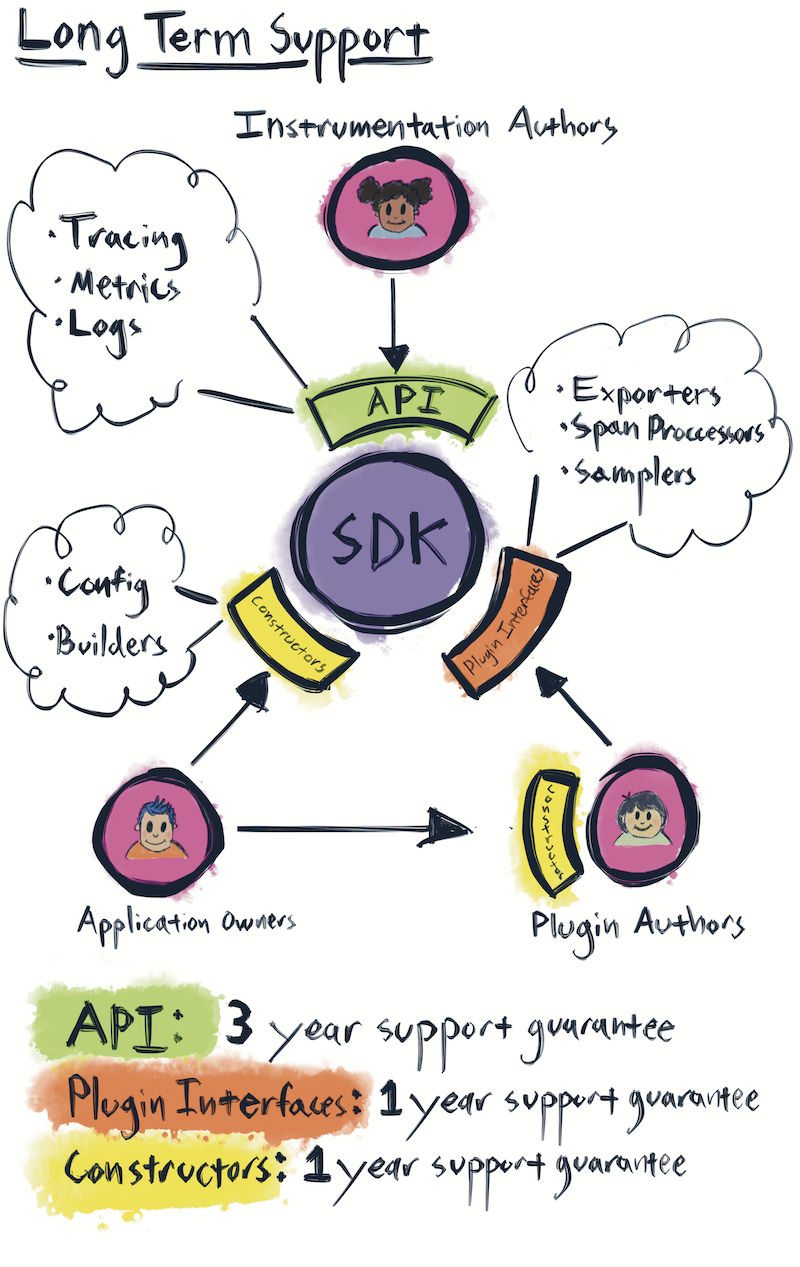 Long Term Support
Instrumentation Authors
· Tracing
· Metrics
· Logs
API
· Exporters
· Span Proccessors
· Samplers
SDK
· Config
· Builders
Constructors
Plugin Interfaces
Constructor
Application Owners
Plugin Authors
API: 3 year support guarantee
Plugin Interfaces: 1 year support guarantee
Constructors: 1 year support guarantee